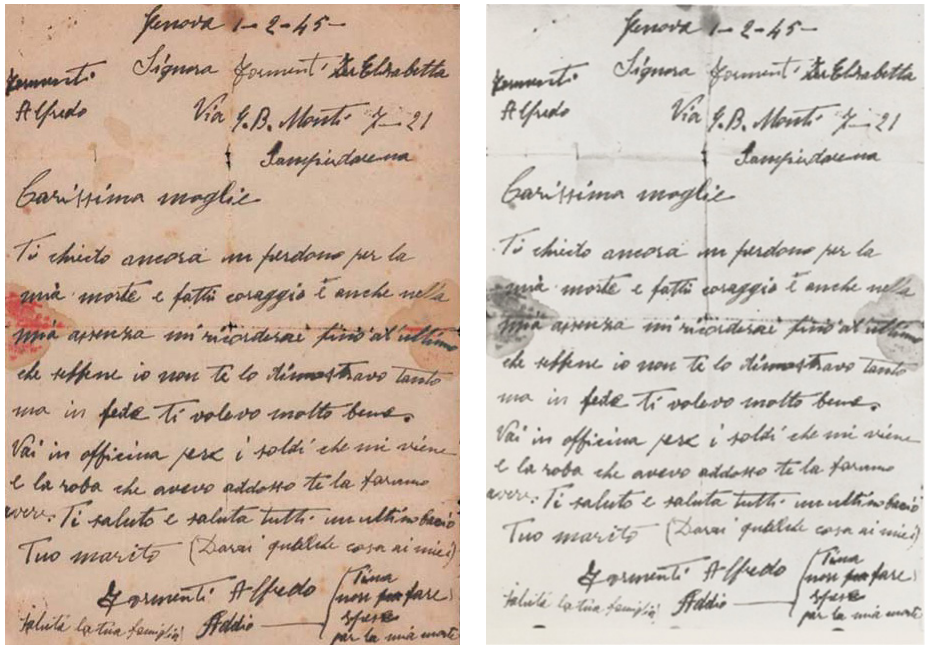 Genova 1-2-45-
Formenti Signora Formenti Elisabetta
Alfredo Via G.B. Monti 7-21
Sampierdarena
Carissima moglie
Ti chiedo ancora un perdono per la
mia morte e fatti coraggio è anche nella
mia assenza mi ricorderai fino al ultimo
che seffene io non te lo dimostravo tanto
ma in fede ti volevo molto bene.
Vai in officina per i soldi che mi viene
e la roba che avevo addosso te la faranno
avere. Ti saluto e saluta tutti un ultimo bacio
Tuo marito (Darai qualche cosa ai miei)
Formenti Alfredo (Tina
non fare
spese
per la mia morte
saluta la tua famiglia Addio
Genova 1-2-45-
Formenti Signora Formenti Elisabetta
Alfredo Via G.B. Monti 7-21
Sampierdarena
Carissima moglie
Ti chiedo ancora un perdono per la
mia morte e fatti coraggio è anche nella
mia assenza mi ricorderai fino al ultimo
che seffene io non te lo dimostravo tanto
ma in fede ti volevo molto bene.
Vai in officina per i soldi che mi viene
e la roba che avevo addosso te la faranno
avere. Ti saluto e saluta tutti un ultimo bacio
Tuo marito (Darai qualche cosa ai miei)
Formenti Alfredo (Tina
non fare
spese
per la mia morte
saluta la tua famiglia Addio